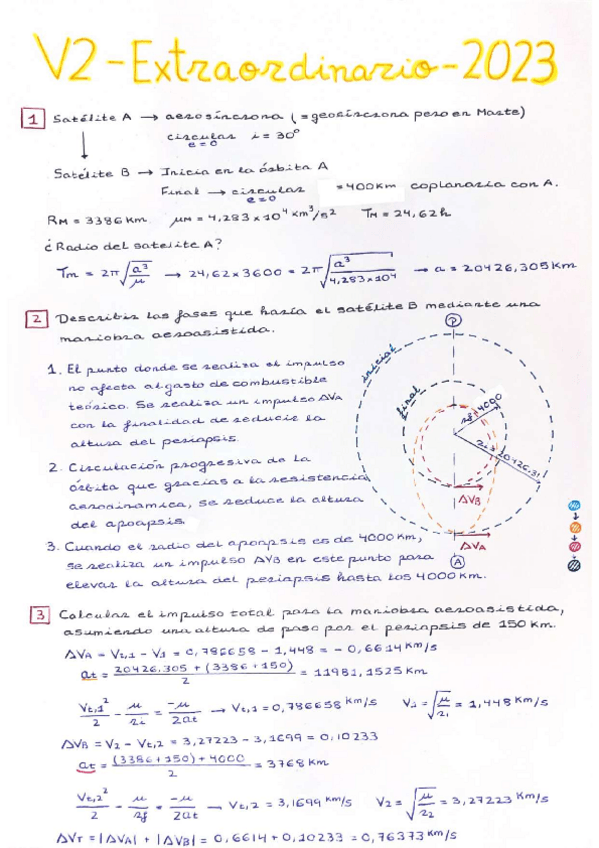 V2 - Extraordinario - 2023
1 Satélite A → aerosíncrona (=geosíncrona pero en Marte)
circular i = 30°
e=0
Satélite B → Inicia en la órbita A
Final → circular = 400 km coplanaria con A.
e=0
RM = 3386 km μM = 4,283 x 10⁴ km³/s² TM = 24,62 h
¿Radio del satelite A?
Tm = 2π √(a³/μ) → 24,62 x 3600 = 2π √(a³/4,283 x 10⁴) → a = 20426,305 km
2 Describir las fases que haría el satélite B mediante una
maniobra aeroasistida.
1. El punto donde se realiza el impulso
no afecta al gasto de combustible
teórico. Se realiza un impulso ΔVA
con la finalidad de reducir la
altura del periapsis.
2. Circulación progresiva de la
órbita que gracias a la resistencia
aerodinámica, se reduce la altura
del apoapsis.
3. Cuando el radio del apoapsis es de 4000 km,
se realiza un impulso ΔVB en este punto para
elevar la altura del periapsis hasta los 4000 km.
P
inicial
final
rf = 4000
ri = 20426,31
ΔVB
ΔVA
A
3 Calcular el impulso total para la maniobra aeroasistida,
asumiendo una altura de paso por el periapsis de 150 km.
ΔVA = Vt,1 - V1 = 0,786658 - 1,448 = - 0,6614 km/s
at = (20426,305 + (3386 + 150))/2 = 11981,1525 km
Vt,1²/2 - μ/ri = -μ/2at → Vt,1 = 0,786658 km/s V1 = √(μ/r1) = 1,448 km/s
ΔVB = V2 - Vt,2 = 3,27223 - 3,1699 = 0,10233
at = ((3386 + 150) + 4000)/2 = 3768 km
Vt,2²/2 - μ/rf = -μ/2at → Vt,2 = 3,1699 km/s V2 = √(μ/r2) = 3,27223 km/s
ΔVT = |ΔVA| + |ΔVB| = 0,6614 + 0,10233 = 0,76373 km/s